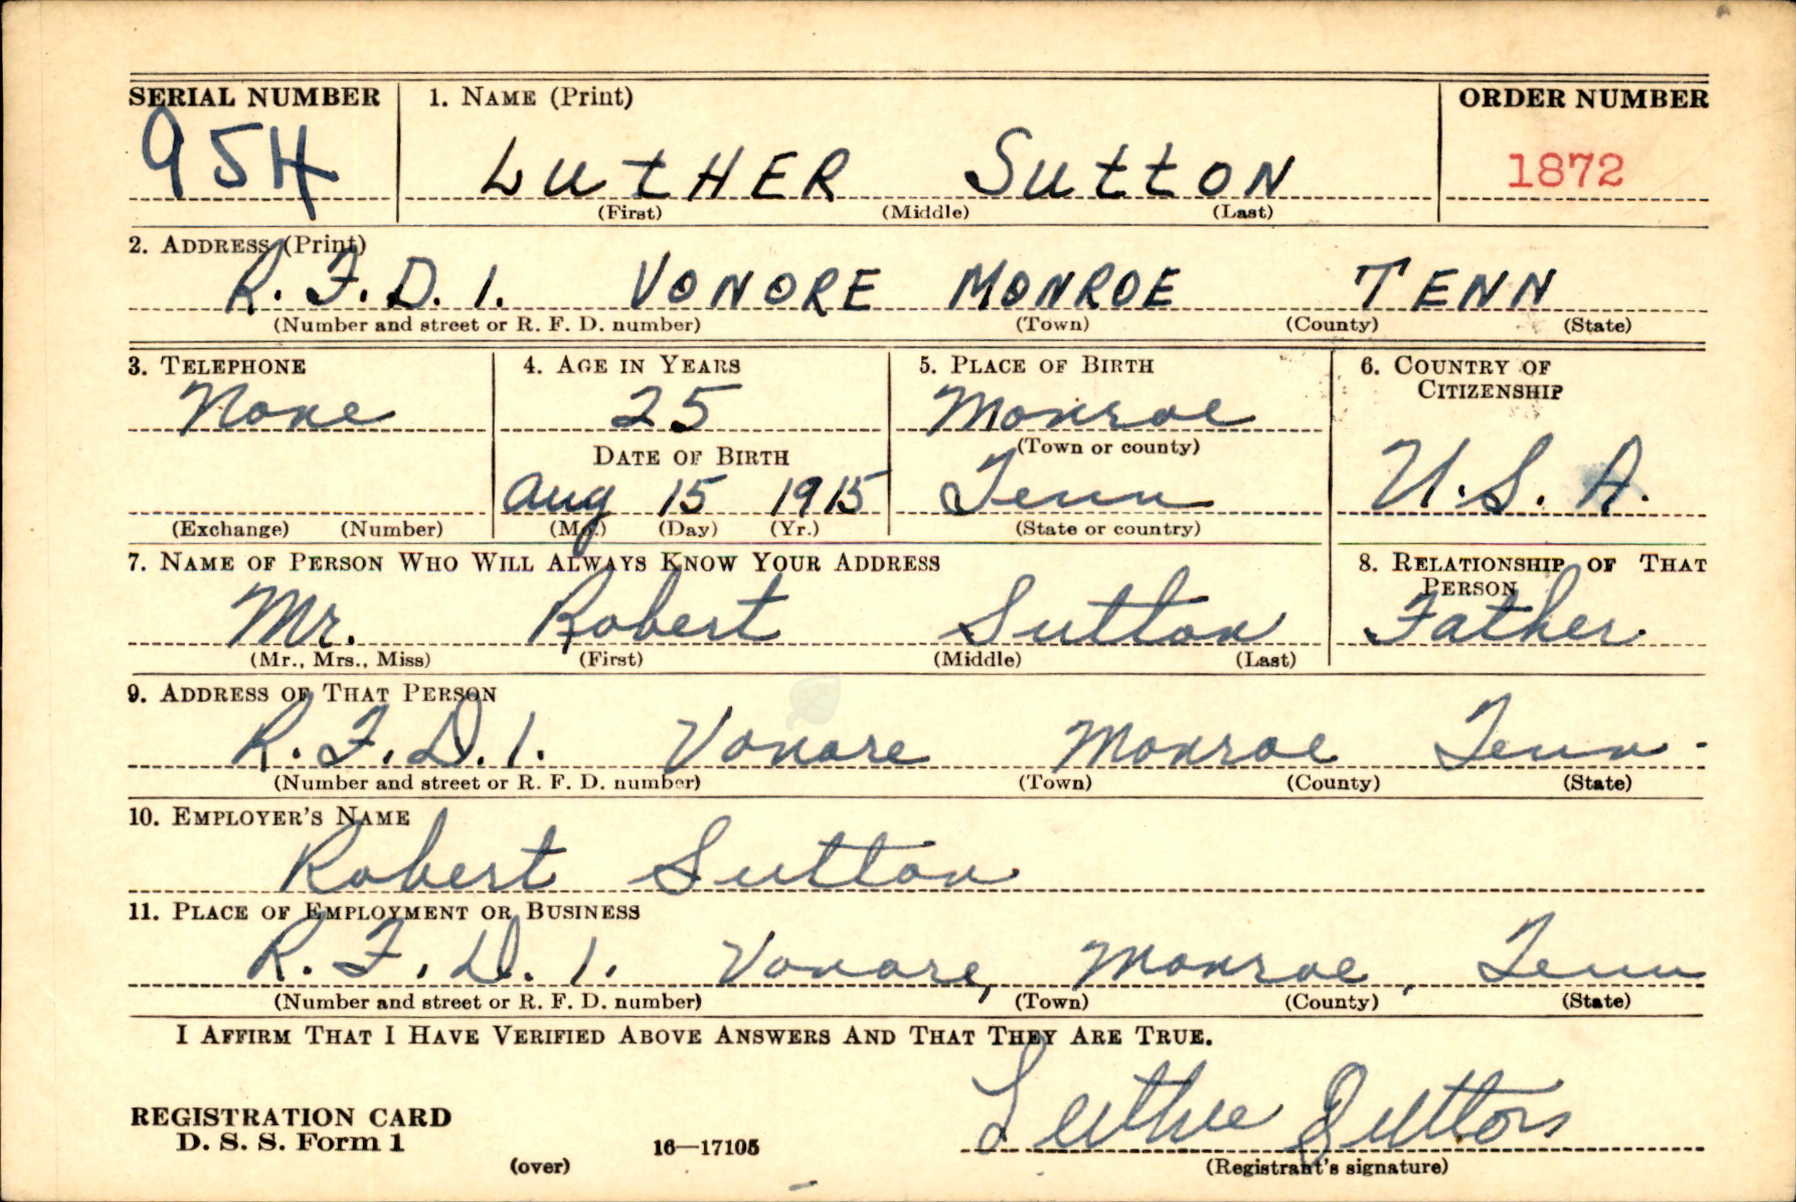 SERIAL NUMBER 1. NAME (Print) ORDER NUMBER
954 LUtHER SuttON 1872
(First) (Middle) (Last)
2. ADDRESS (Print)
R.F.D. 1. VONORE MONROE TENN
(Number and street or R. F. D. number) (Town) (County) (State)
3. TELEPHONE 4. AGE IN YEARS 5. PLACE OF BIRTH 6. COUNTRY OF CITIZENSHIP
None 25 Monroe
DATE OF BIRTH (Town or county)
Aug 15 1915 Tenn U.S.A.
(Exchange) (Number) (Mo.) (Day) (Yr.) (State or country)
7. NAME OF PERSON WHO WILL ALWAYS KNOW YOUR ADDRESS 8. RELATIONSHIP OF THAT PERSON
Mr. Robert Sutton Father
(Mr., Mrs., Miss) (First) (Middle) (Last)
9. ADDRESS OF THAT PERSON
R.F.D. 1. Vonore Monroe Tenn.
(Number and street or R. F. D. number) (Town) (County) (State)
10. EMPLOYER'S NAME
Robert Sutton
11. PLACE OF EMPLOYMENT OR BUSINESS
R.F.D. 1. Vonore, Monroe, Tenn
(Number and street or R. F. D. number) (Town) (County) (State)
I AFFIRM THAT I HAVE VERIFIED ABOVE ANSWERS AND THAT THEY ARE TRUE.
REGISTRATION CARD
D. S. S. Form 1 16—17105 Luther Sutton
(over) (Registrant's signature)